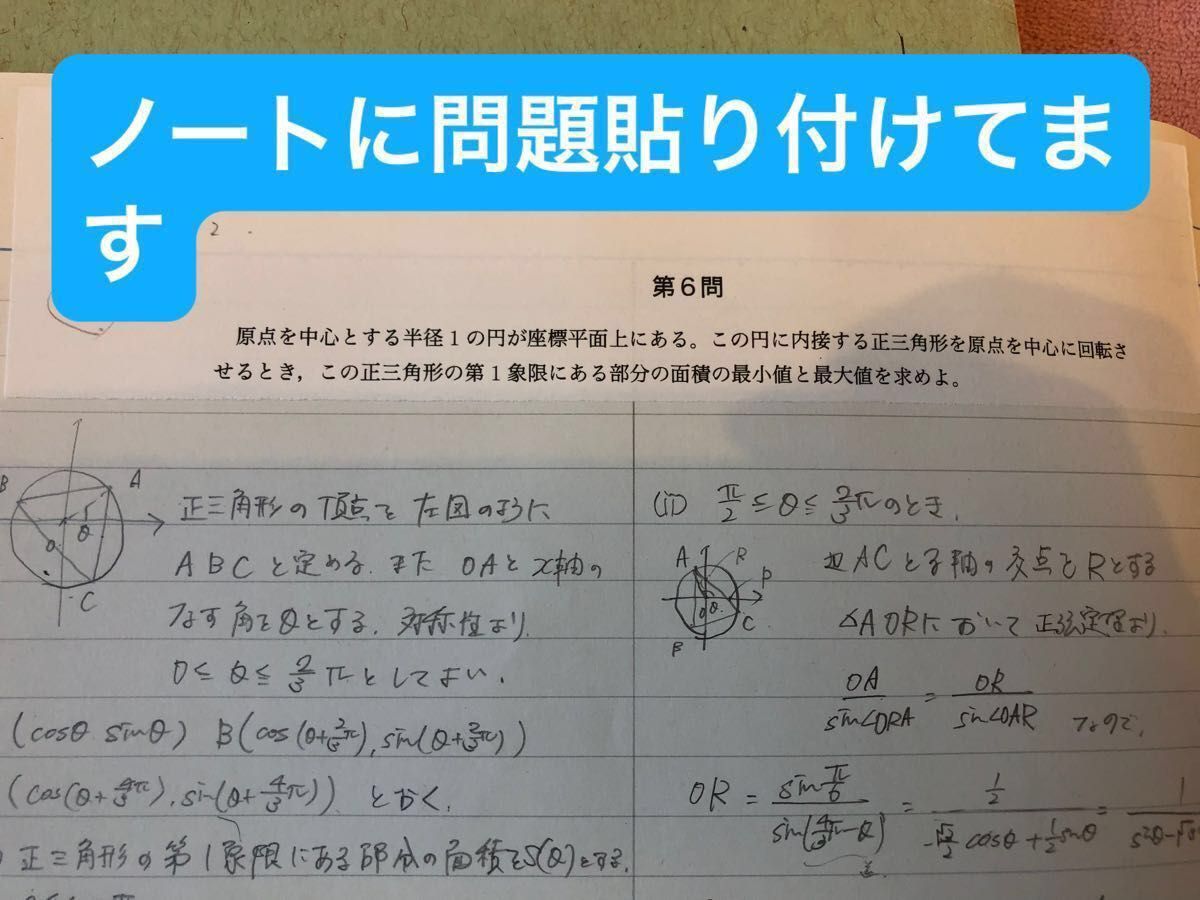 ノートに問題貼り付けてま
す
2
第6問
原点を中心とする半径1の円が座標平面上にある。この円に内接する正三角形を原点を中心に回転さ
せるとき，この正三角形の第1象限にある部分の面積の最小値と最大値を求めよ。
B A
正三角形の頂点を左図のように
θ
A B C と定める. また OAとx軸の
C
なす角をθとする. 対称性より.
0≦θ≦2/3 π としてよい.
(cosθ sinθ) B(cos(θ+2/3π), sin(θ+2/3π))
(cos(θ+4/3π), sin(θ+4/3π)) とおく.
正三角形の第1象限にある部分の面積をS(θ)とする.
(ii) π/2≦θ≦2/3πのとき.
A R P
辺ACとy軸の交点をRとする
B C
△AORにおいて正弦定理より.
OA/sin∠ORA = OR/sin∠OAR なので,
OR = sin π/6 / sin(4/3π-θ) = 1/2 / -√3/2 cosθ+1/2 sinθ =